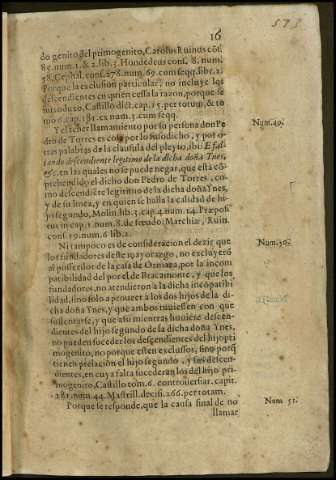 573
16
do genito del primogenito, Carolus Ruinus cons.
85. num. 1. & 2. lib. 3. Hondedeus cons. 8. num.
38. Cephal. cons. 278. num. 69. cum seqq. libr. 2.
Porque la exclusion particular, no incluye los
descendientes en quien cessa la razon, porque se
introduxo, Castillo dict. cap. 15. per totum, & to
mo 6. cap. 181. ex num. 3. cum seqq.
Y el tener llamamiento por su persona don Pe
dro de Torres es cosa por lo susodicho, y por o-
tras palabras de la clausula del pleyto, ibi: E fal-
tando descendiente legitimo de la dicha doña Ynes,
&c. en las quales no se puede negar, que està cõ-
prehendido el dicho don Pedro de Torres, co-
mo descendiẽte legitimo de la dicha doña Ynes,
y de su linea, y en quien se halla la calidad de hi-
jo segundo, Molin. lib. 3. cap. 4. num. 14. Præposi
tus in cap. 1. num. 8. de fœudo Marchiæ, Ruin.
cons. 19. num. 6. lib. 2.
Ni tampoco es de consideracion el dezir que
los fundadores deste mayorazgo, no excluyerõ
al posseedor de la casa de Orniaga, por la incom
patibilidad del por el de Bracamonte, y que los
fundadores, no atendieron a la dicha incõpatibi
lidad, sino solo a proueer à los dos hijos de la di-
cha doña Ynes, y que ambos tuuiessen con que
sustentarse, y que assi mientras huuiere descen-
dientes del hijo segundo de la dicha doña Ynes,
no pueden suceder los descendientes del hijo pri
mogenito, no porque esten exclusos, sino porq̃
tienen prelacion el hijo segundo, y sus descen-
dientes, en cuya falta sucederan los del hijo pri-
mogenito, Castillo tom. 6. controuersiar. capit.
181. num. 44. Mastrill. decis. 266. per totam.
Porque se responde, que la causa final de no
llamar
Num. 49.
Num. 50.
Num. 51.